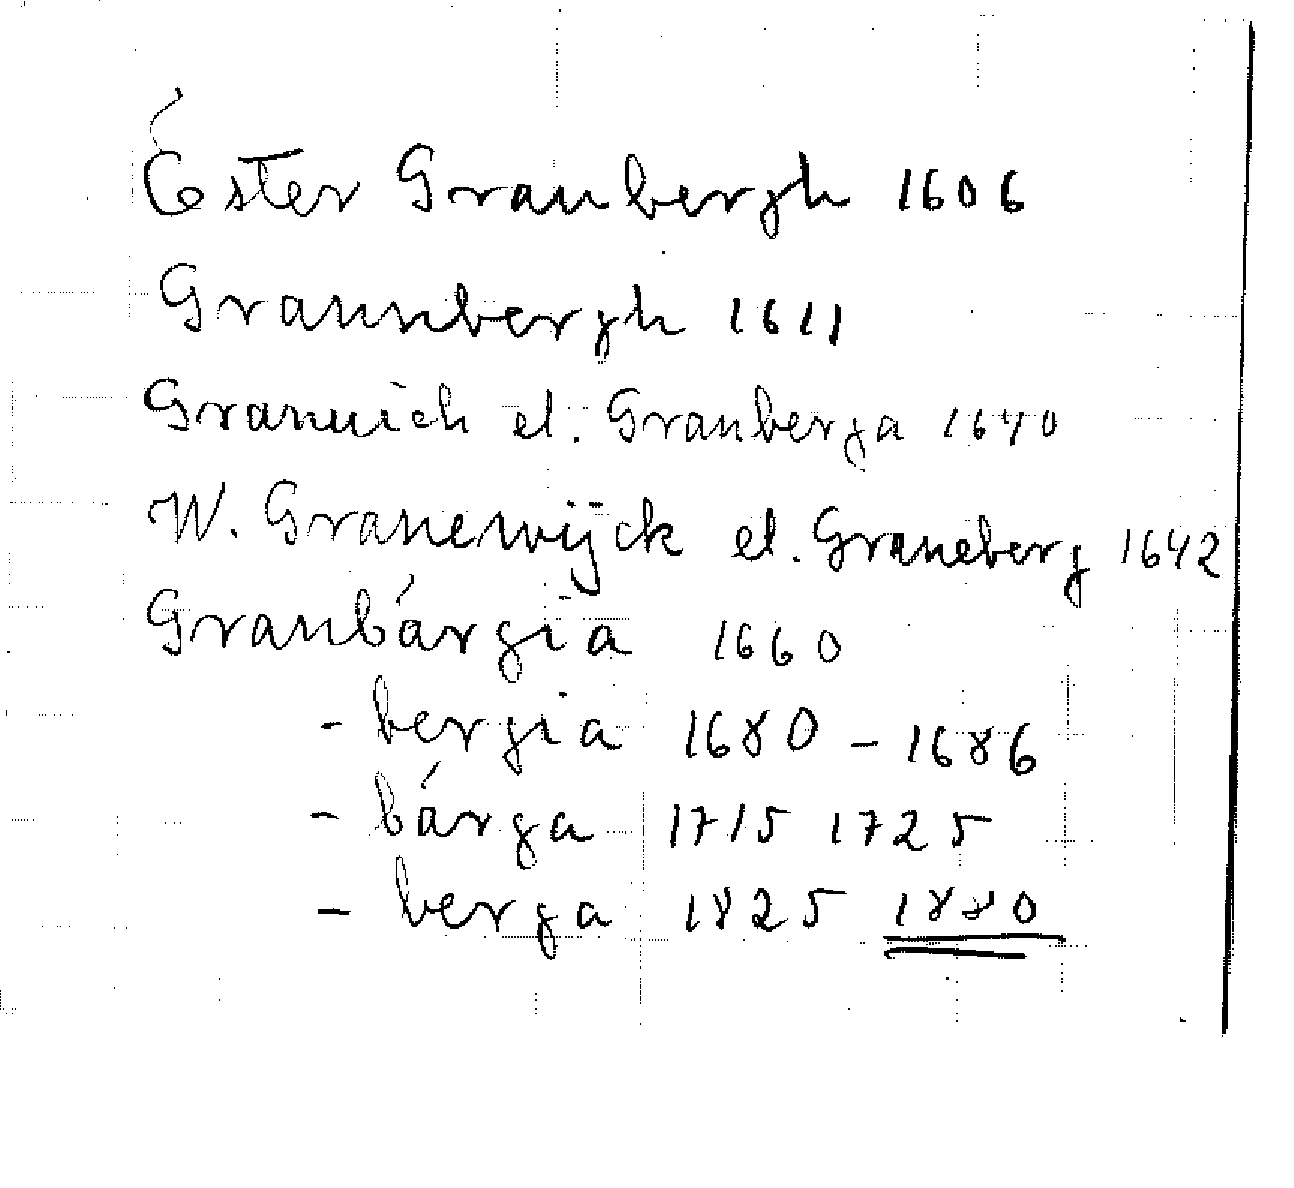 Éster Granbergh 1606
Grannbergh 1611
Granwich el. Granberga 1640
W. Granewijck el. Graneberg 1642
Granbárgia 1660
- bergia 1680 - 1686
- bárga 1715 1725
- berga 1825 1880